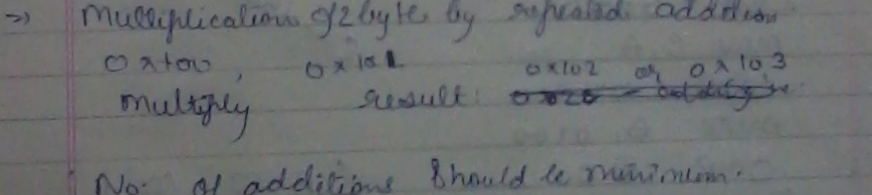 => Multiplication of 2 byte by repeated addition
0x100, 0x101 0x102 or 0x103
multiply result:
No. of additions should be minimum.